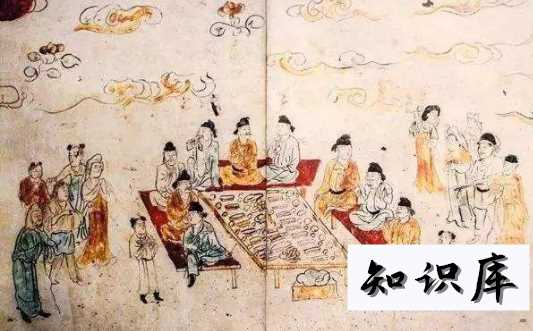 知识库